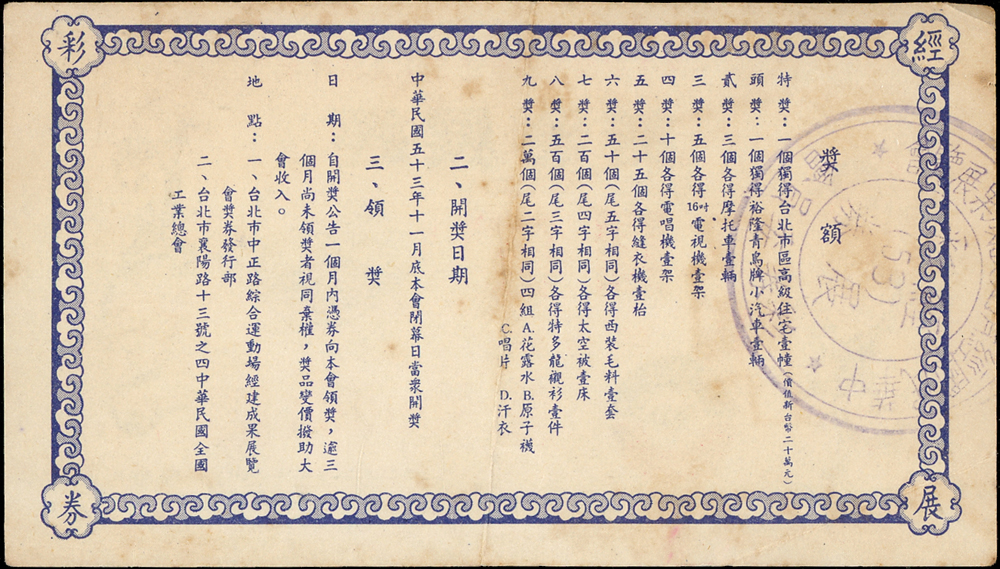 經展彩券
獎額
特獎：一個獨得台北市區高級住宅壹幢（價值新台幣二十萬元）
頭獎：一個獨得裕隆青鳥牌小汽車壹輛
貳獎：三個各得摩托車壹輛
三獎：五個各得16吋電視機壹架
四獎：十個各得電唱機壹架
五獎：二十五個各得縫衣機壹枱
六獎：五十個（尾五字相同）各得西裝毛料壹套
七獎：二百個（尾四字相同）各得太空被壹床
八獎：五百個（尾三字相同）各得特多龍襯衫壹件
九獎：二萬個（尾二字相同）四組A.花露水 B.原子襪
C.唱片 D.汗衣
二、開獎日期
中華民國五十三年十一月底本會閉幕日當衆開獎
三、領獎
日期：自開獎公告一個月內憑券向本會領獎，逾三
個月尚未領獎者視同棄權，獎品變價撥助大
會收入。
地點：一、台北市中正路綜合運動場經建成果展覽
會獎券發行部
二、台北市襄陽路十三號之四中華民國全國
工業總會